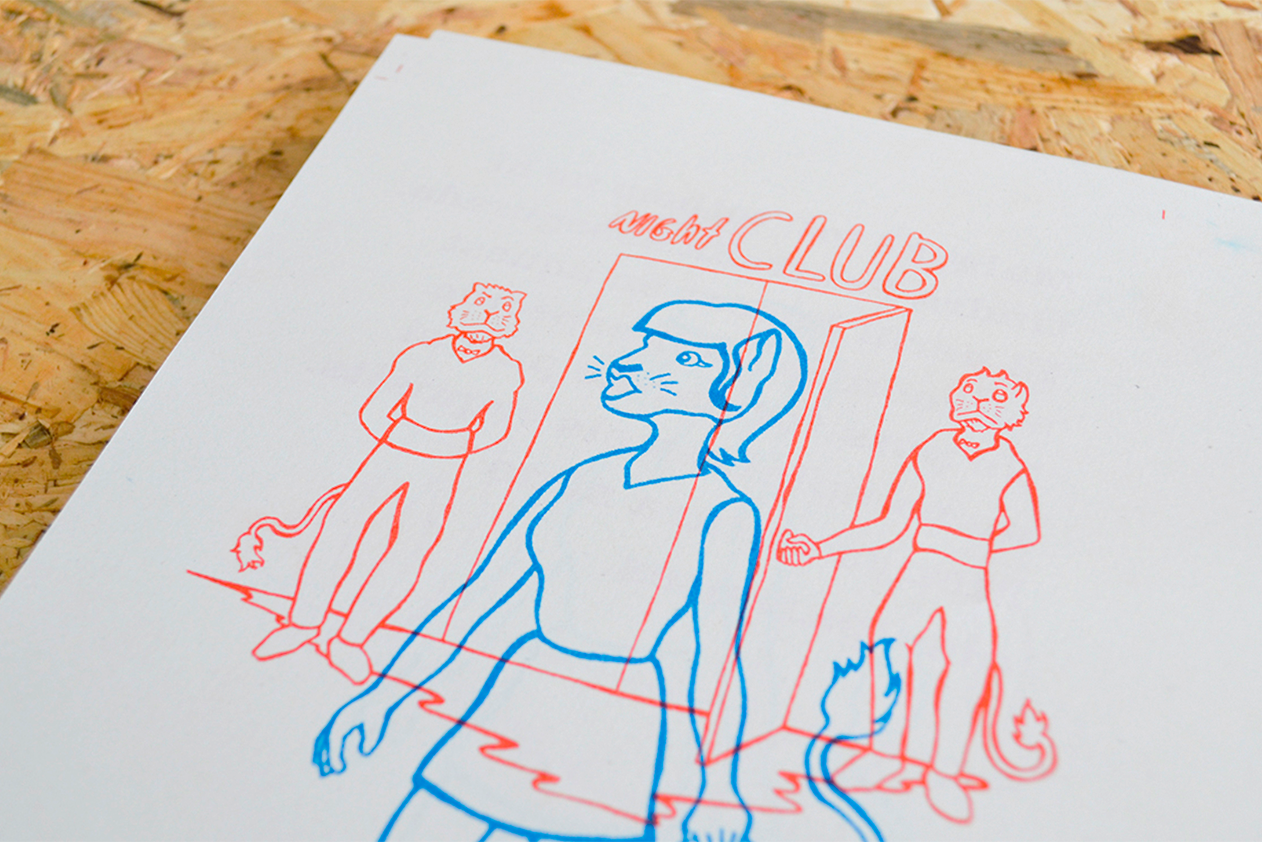 NIGHT CLUB